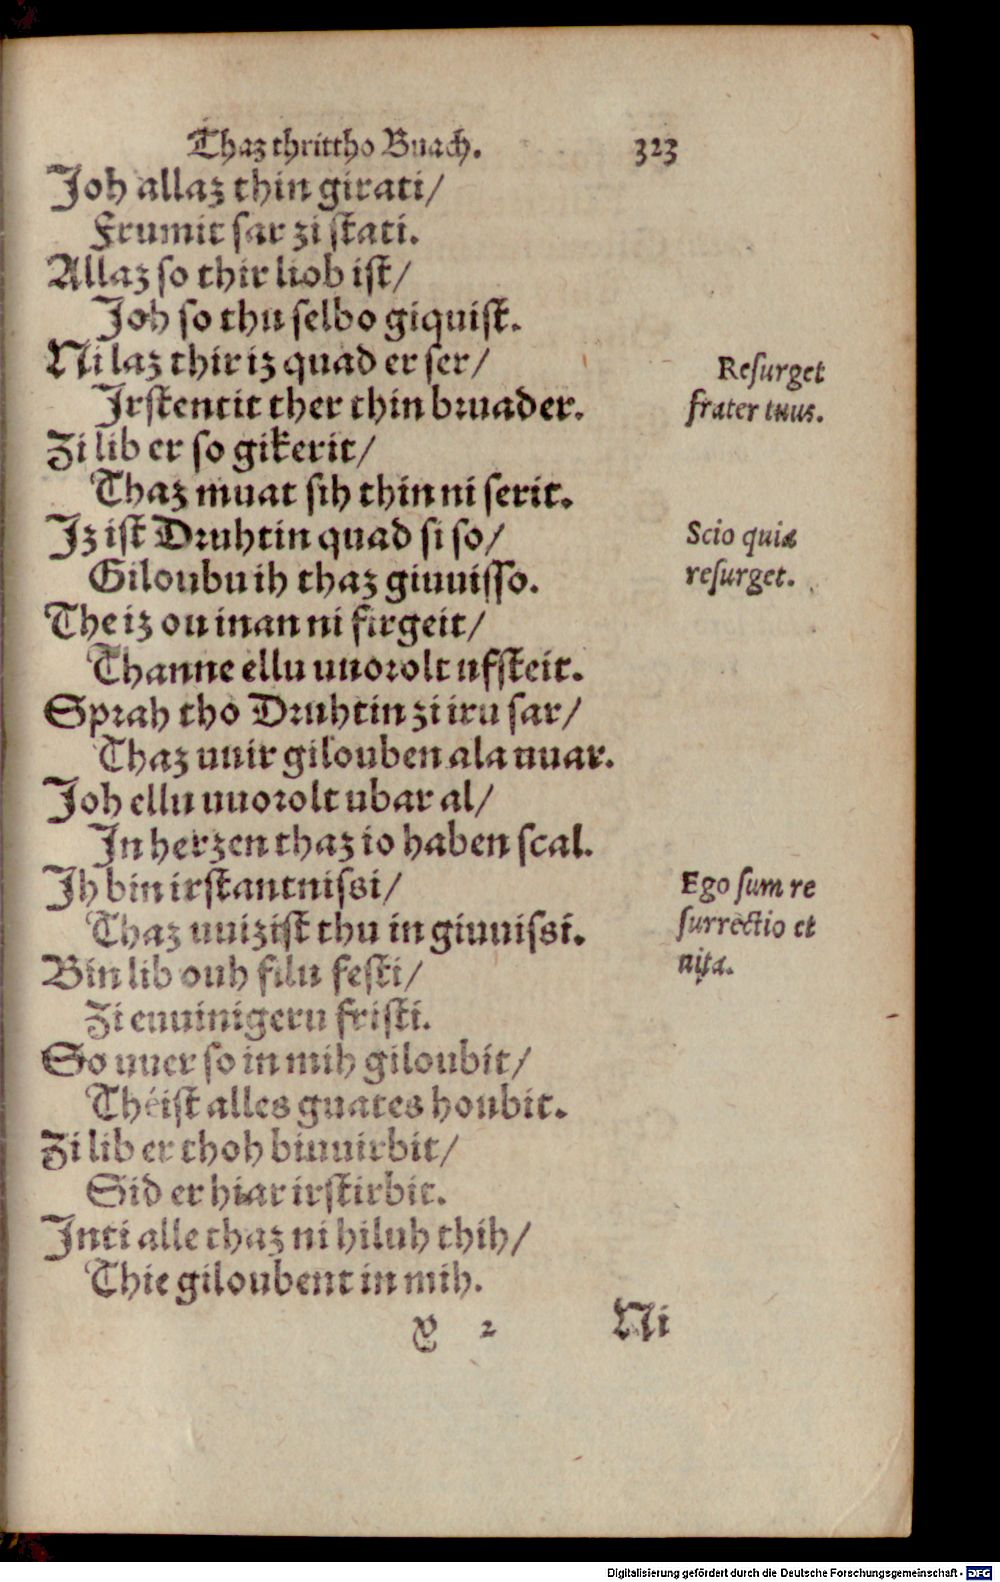 Thaz thrittho Buach. 323
Joh allaz thin girati/
Frumit sar zi stati.
Allaz so thir liob ist/
Joh so thu selbo giquist.
Ni laz thir iz quad er ser/
Resurget
Irstentit ther thin bruader.
frater tuus.
Zi lib er so gikerit/
Thaz muat sih thin ni serit.
Iz ist Druhtin quad si so/
Scio quia
Giloubu ih thaz giuuisso.
resurget.
The iz ou inan ni firgeit/
Thanne ellu uuorolt ufsteit.
Sprah tho Druhtin zi iru sar/
Thaz uuir gilouben ala uuar.
Joh ellu uuorolt ubar al/
In herzen thaz io haben scal.
Ih bin irstantnissi/
Ego sum re
Thaz uuizist thu in giuuissi.
surrectio et
uita.
Bin lib ouh filu festi/
Zi euuinigeru fristi.
So uuer so in mih giloubit/
Théist alles guates houbit.
Zi lib er thoh biuuirbit/
Sid er hiar irstirbit.
Inti alle thaz ni hiluh thih/
Thie giloubent in mih.
X 2 Ni
Digitalisierung gefördert durch die Deutsche Forschungsgemeinschaft - DFG